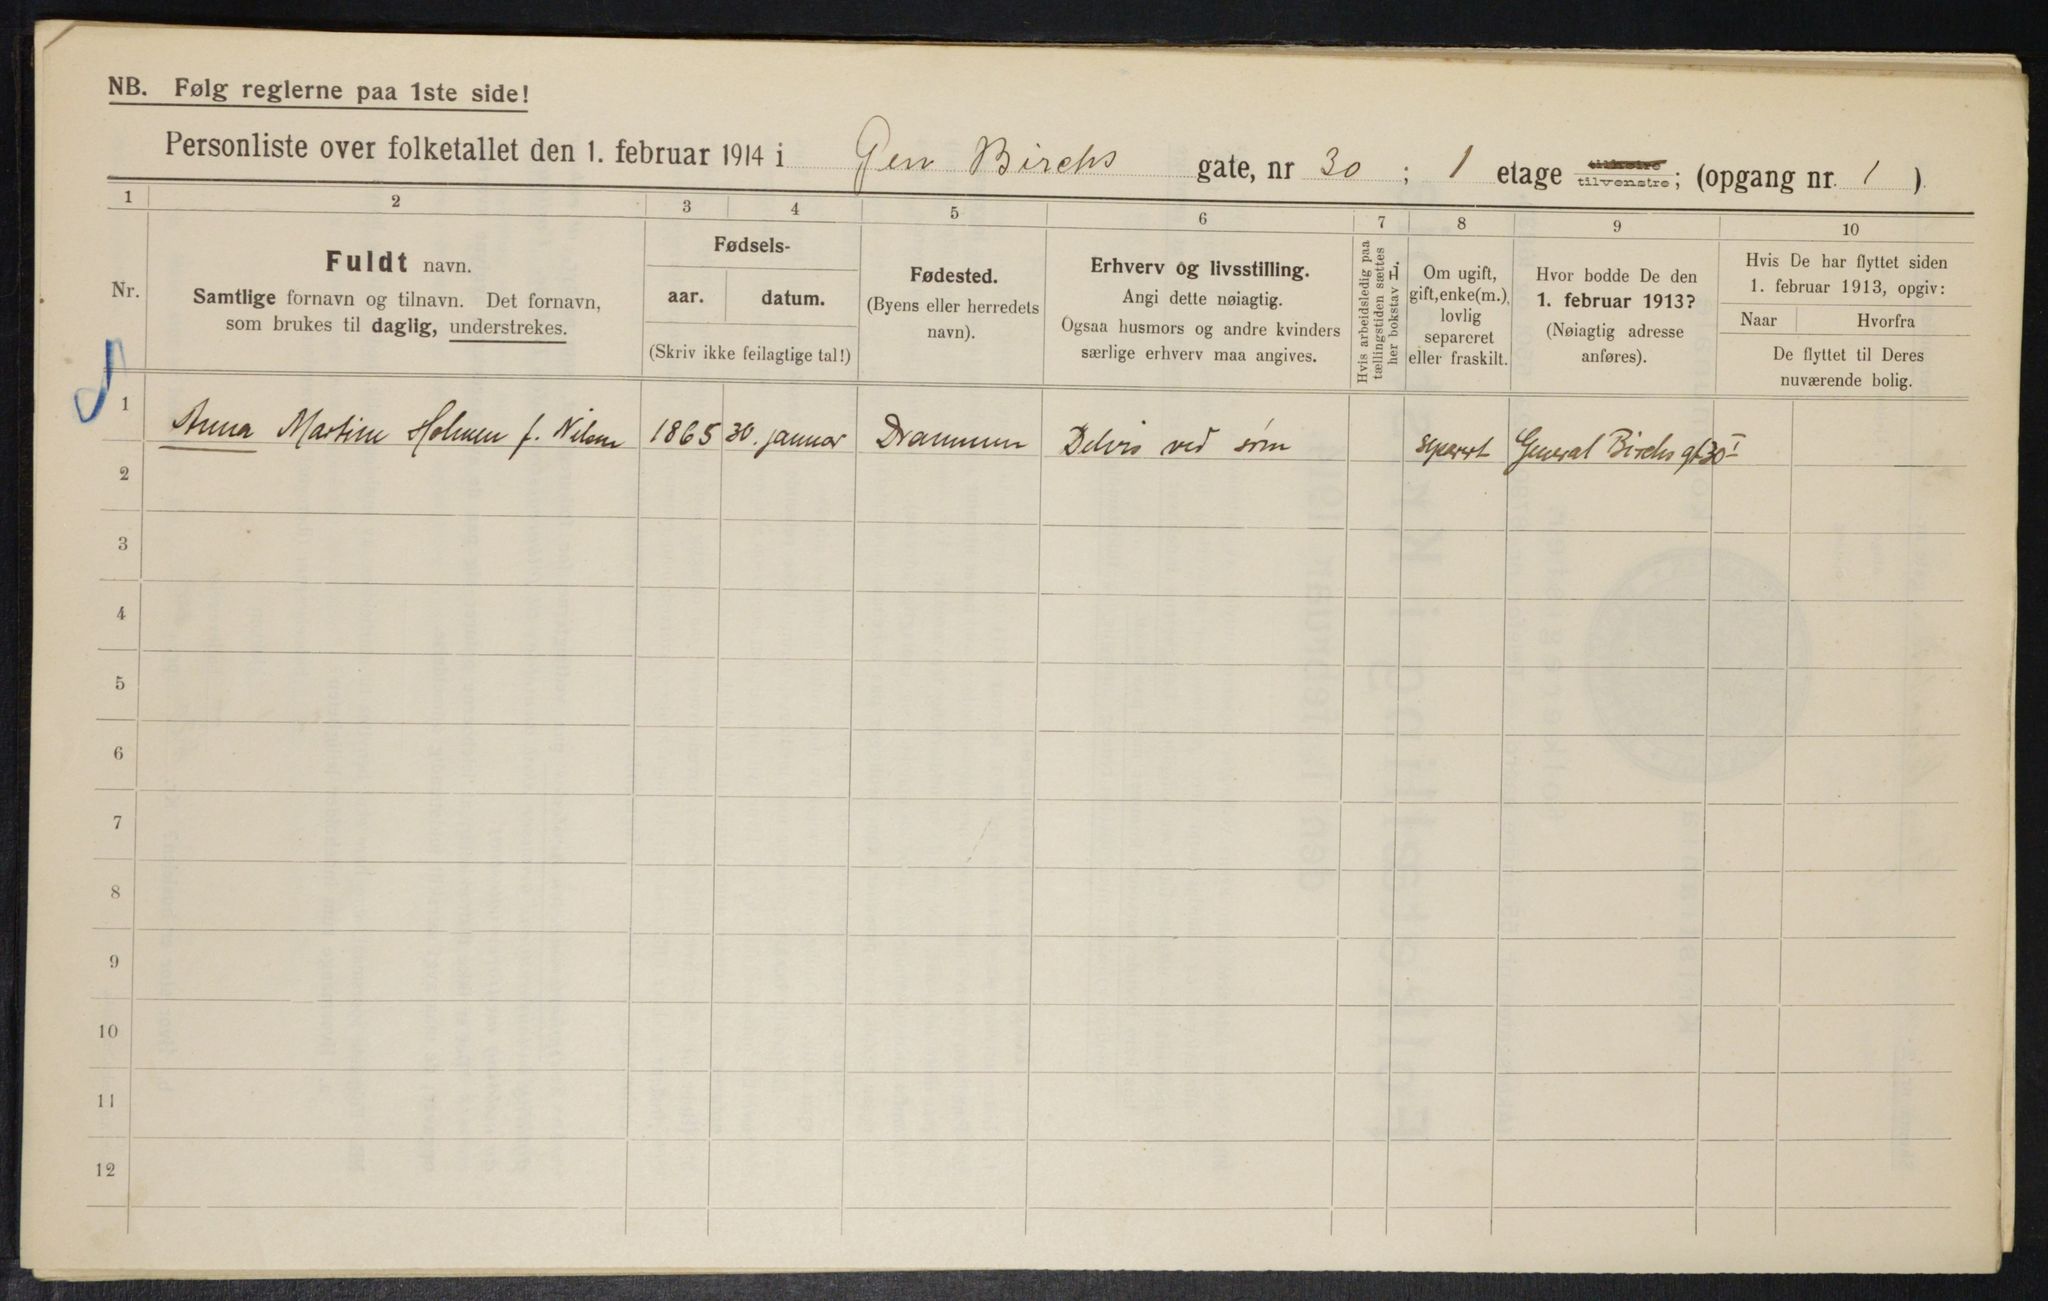 NB. Følg reglerne paa 1ste side!
Personliste over folketallet den 1. februar 1914 i Gen Birchs gate, nr 30 ; 1 etage tilhøire tilvenstre; (opgang nr. 1 )
1 2 3 4 5 6 7 8 9 10
Nr.
Fuldt navn.
Samtlige fornavn og tilnavn. Det fornavn,
som brukes til daglig, understrekes.
Fødsels-
aar. datum.
(Skriv ikke feilagtige tal!)
Fødested.
(Byens eller herredets
navn).
Erhverv og livsstilling.
Angi dette nøiagtig.
Ogsaa husmors og andre kvinders
særlige erhverv maa angives.
Hvis arbeidsledig paa
tællingstiden sættes
her bokstav L.
Om ugift,
gift, enke(m.),
lovlig
separeret
eller fraskilt.
Hvor bodde De den
1. februar 1913?
(Nøiagtig adresse
anføres).
Hvis De har flyttet siden
1. februar 1913, opgiv:
Naar Hvorfra
De flyttet til Deres
nuværende bolig.
1 Anna Martine Holmen f. Nilsen 1865 30. januar Drammen Delvis ved søm separert General Birchs gt 30 I
2
3
4
5
6
7
8
9
10
11
12